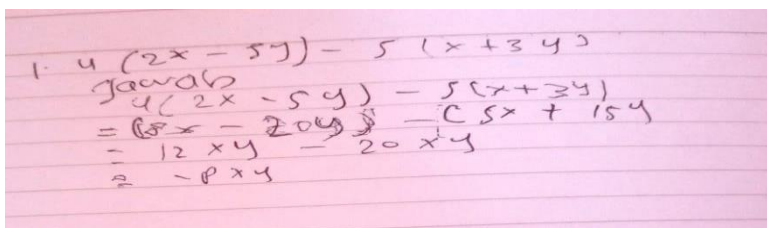 1. 4 (2x - 5y) - 5 (x + 3y)
Jawab
4(2x - 5y) - 5(x + 3y)
= (8x - 20y) - (5x + 15y
= 12xy - 20xy
= -8xy